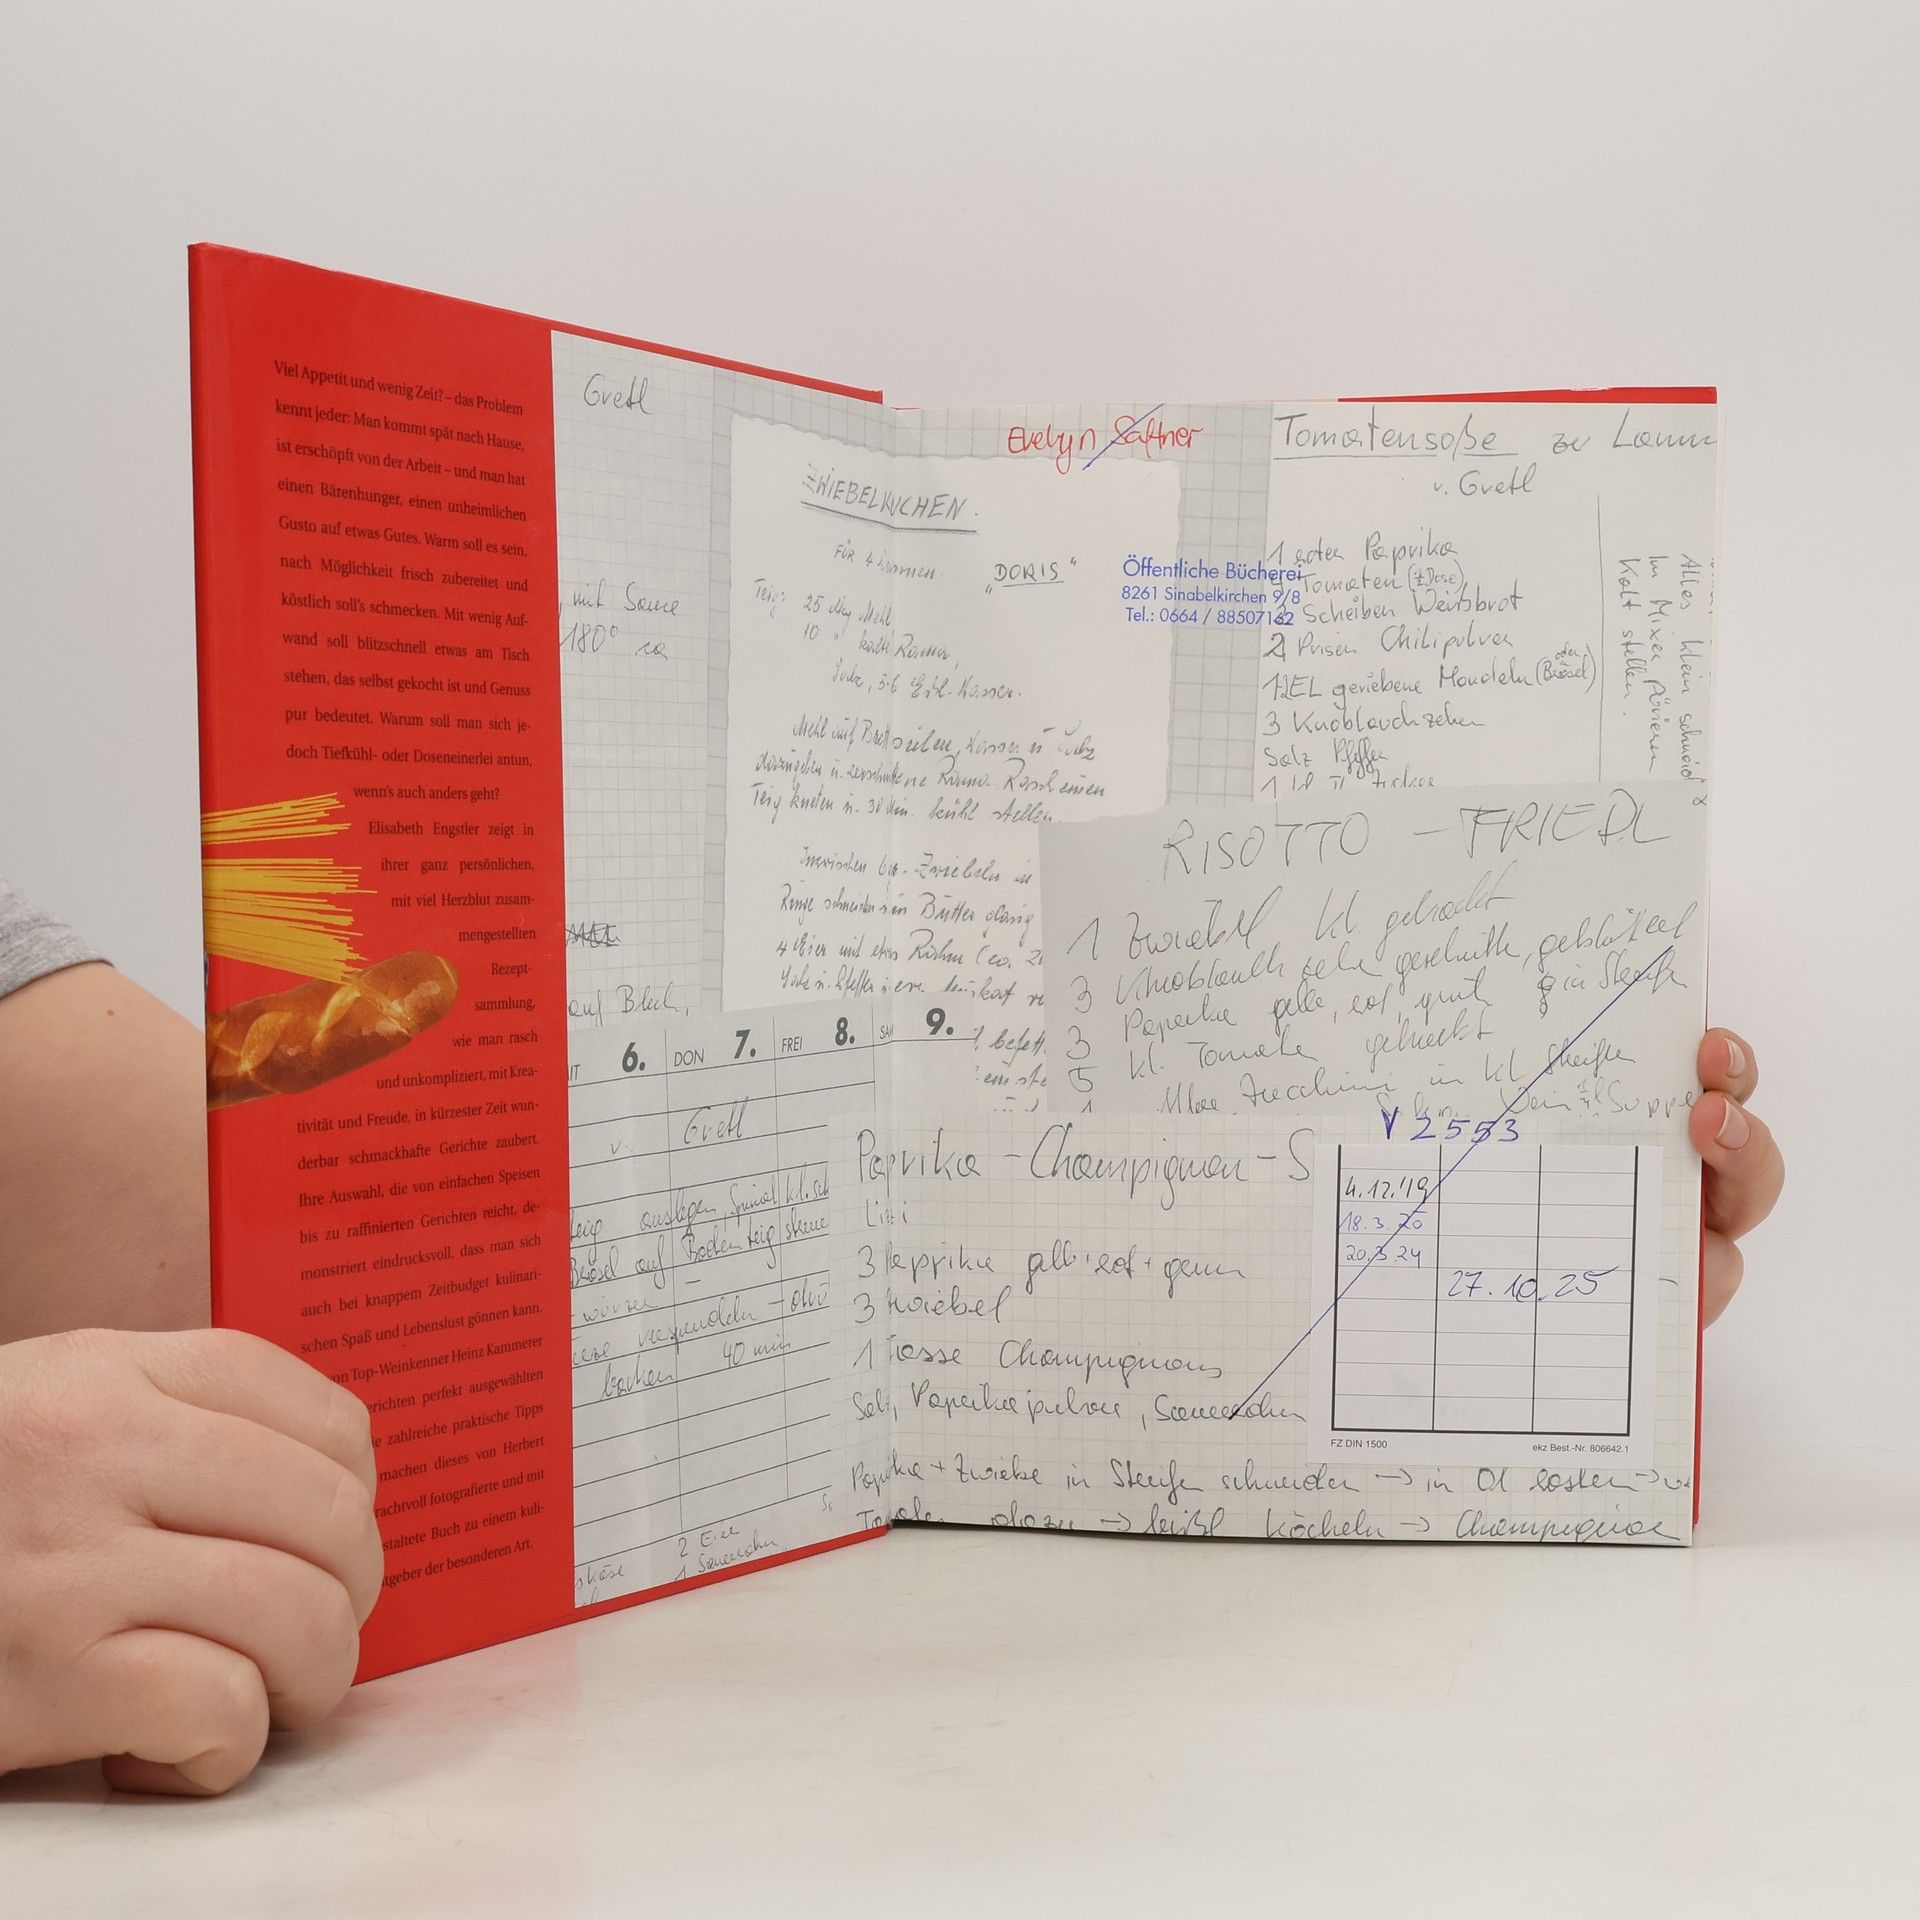 Viel Appetit und wenig Zeit? – das Problem
kennt jeder: Man kommt spät nach Hause,
ist erschöpft von der Arbeit – und man hat
einen Bärenhunger, einen unheimlichen
Gusto auf etwas Gutes. Warm soll es sein,
nach Möglichkeit frisch zubereitet und
köstlich soll's schmecken. Mit wenig Auf-
wand soll blitzschnell etwas am Tisch
stehen, das selbst gekocht ist und Genuss
pur bedeutet. Warum soll man sich je-
doch Tiefkühl- oder Doseneinerlei antun,
wenn's auch anders geht?
Elisabeth Engstler zeigt in
ihrer ganz persönlichen,
mit viel Herzblut zusam-
mengestellten
Rezept-
sammlung,
wie man rasch
und unkompliziert, mit Krea-
tivität und Freude, in kürzester Zeit wun-
derbar schmackhafte Gerichte zaubert.
Ihre Auswahl, die von einfachen Speisen
bis zu raffinierten Gerichten reicht, de-
monstriert eindrucksvoll, dass man sich
auch bei knappem Zeitbudget kulinari-
schen Spaß und Lebenslust gönnen kann.
von Top-Weinkenner Heinz Kammerer
erichten perfekt ausgewählten
ie zahlreiche praktische Tipps
machen dieses von Herbert
rachtvoll fotografierte und mit
staltete Buch zu einem kuli-
tgeber der besonderen Art.
Gretl
, mit Sauce
180° ca
auf Blech,
6. DON 7. FREI 8. SA 9.
v. Gretl
teig auslegen, Spinat kl. sch
Brösel auf Boden teig streue
40 min
backen
2 Eier
1 Sauerrahm
ZWIEBELKUCHEN.
FÜR 4 Personen. "DORIS"
Teig: 25 dkg Mehl
10 " kalte Rama,
Salz, 5-6 Eßl. Wasser.
Mehl auf Brett sieben, Wasser u. Salz
dazugeben u. zerschnittene Rama. Rasch einen
Teig kneten u. 30 Min. kühl stellen.
Inzwischen 6 gr. Zwiebeln in
Ringe schneiden u. in Butter glasig
4 Eier mit etwas Rahm (ca. 2
Salz u. Pfeffer u. ev. Muskat
Evelyn Saftner
Öffentliche Bücherei
8261 Sinabelkirchen 9/8
Tel.: 0664 / 88507162
Tomatensoße zu Lamm
v. Gretl
1 roten Paprika
Tomaten (Dose)
Scheiben Weißbrot
2 Prisen Chilipulver
EL geriebene Mandeln (oder Brösel)
3 Knoblauchzehen
Salz Pfeffer
Alles klein schneid
im Mixer pürieren
Kalt stellen.
RISOTTO – FRIEDL
1 Zwiebel kl. gehackt
3 Knoblauchzehe geschnitten, geblättert
3 Paprika gelb, rot, grün in Streifen
5 kl. Tomate gehackt
1 Zucchini in kl Streifen
Suppe
V 2553
4.12.'19
18.3.20
20.3.24
27.10.25
FZ DIN 1500 ekz Best.-Nr. 806642.1
Paprika – Champignon – S
Lizzi
3 Paprika gelb + rot + grün
3 Zwiebel
1 Tasse Champignons
Salz, Paprikapulver, Sauerrahm
Paprika + Zwiebel in Streifen schneiden → in Öl rösten →
Tomaten dazu → bissl köcheln → Champignon